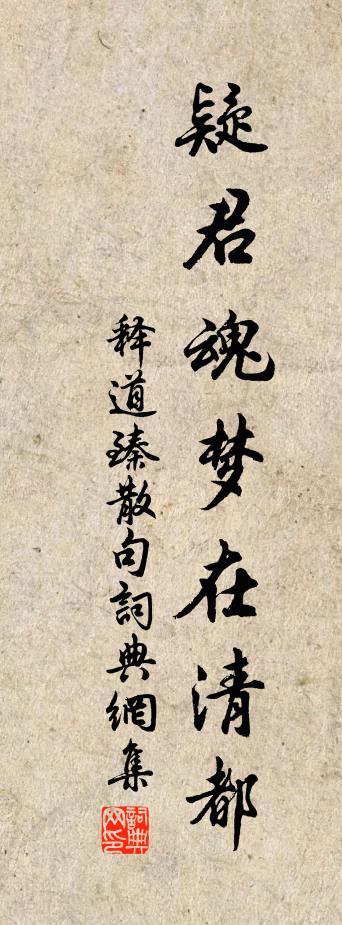 疑君魂梦在清都
释道臻散句詞典網集
詞典网印